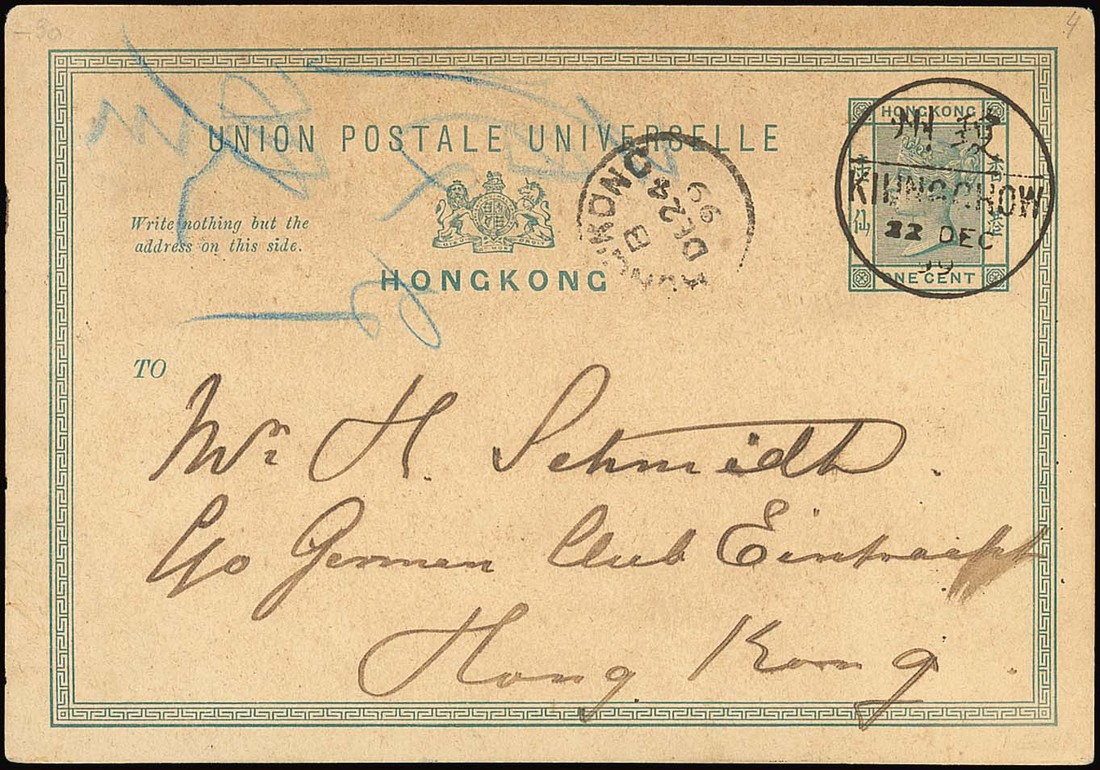 -30
4
UNION POSTALE UNIVERSELLE
HONGKONG
ONE CENT
KIUNGCHOW
22 DEC
99
HONGKONG
B
DE 24
99
Write nothing but the
address on this side.
HONGKONG
TO
Mr. H. Schmidt.
C/o German Club Eintracht
Hong Kong.